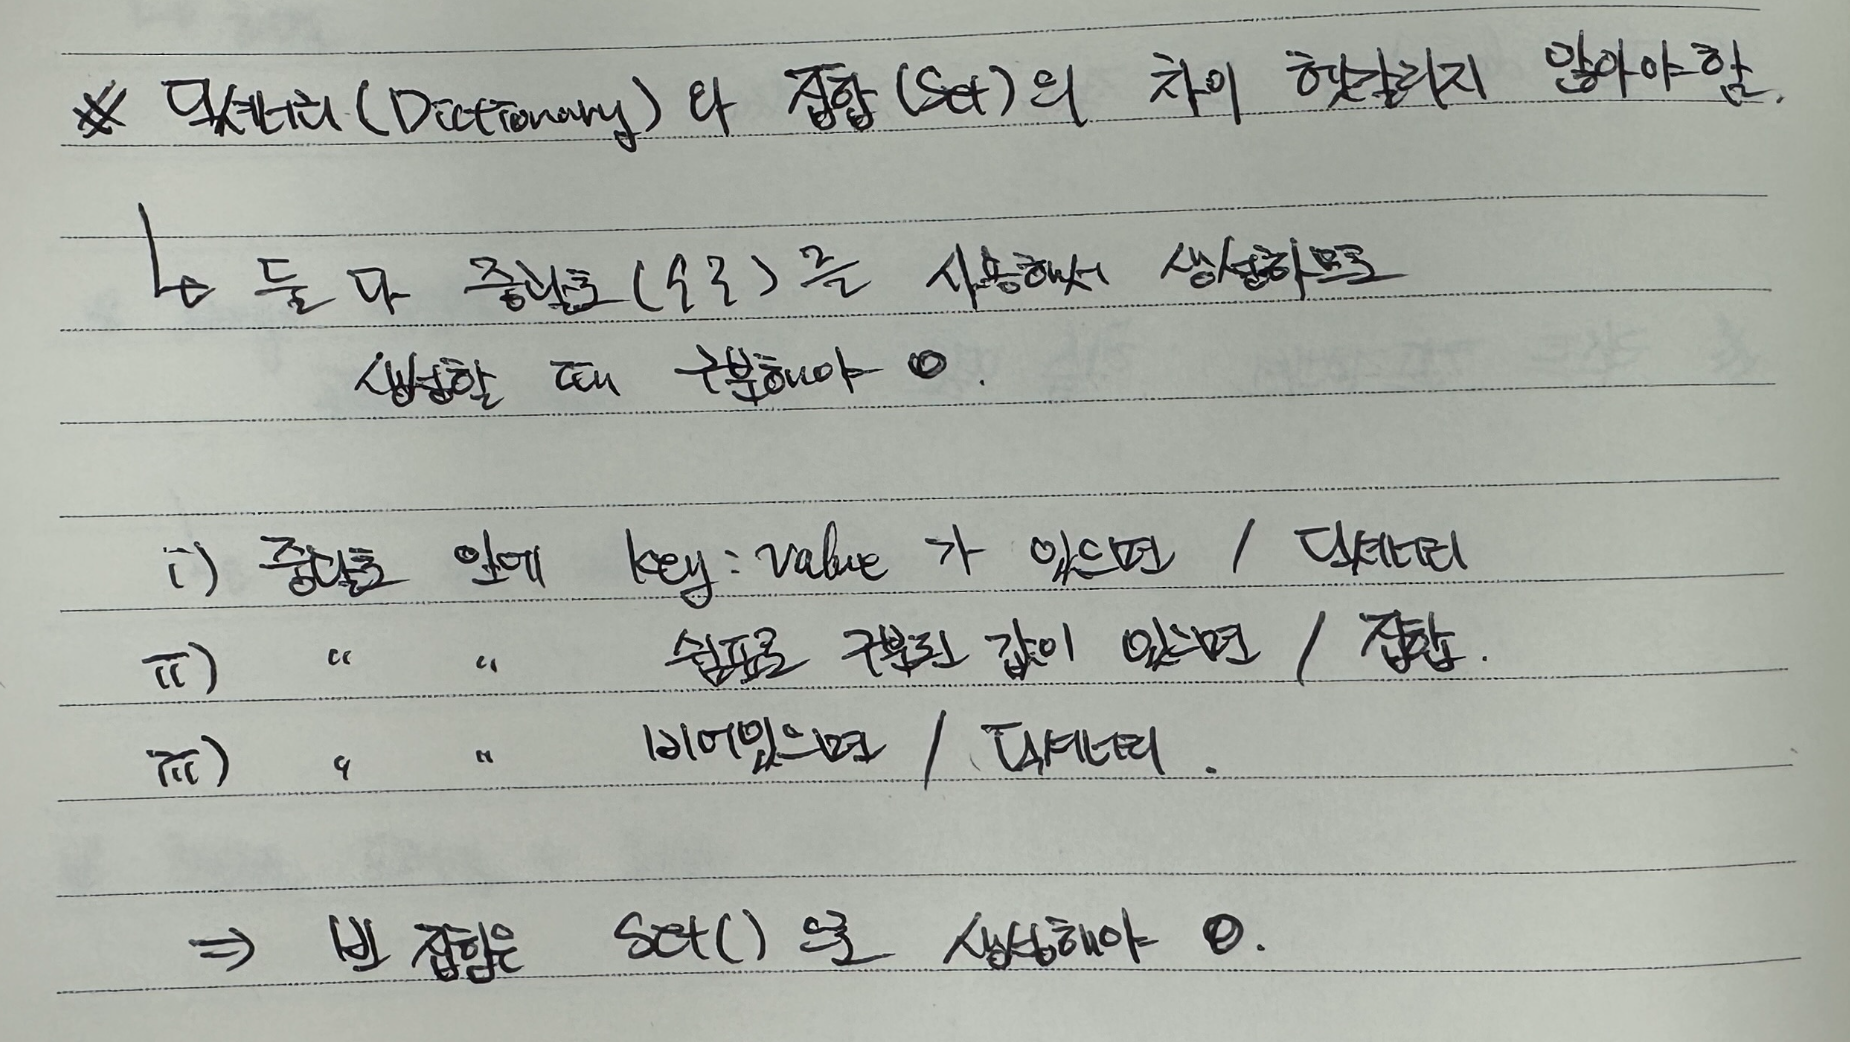 ※ 딕셔너리(Dictionary)와 집합(Set)의 차이 헷갈리지 않아야함.
↳ 둘 다 중괄호({ })를 사용해서 생성하므로
생성할 때 구분해야 O.
i) 중괄호 안에 key : value 가 있으면 / 딕셔너리
ii) " " 쉼표로 구분된 값이 있으면 / 집합.
iii) " " 비어있으면 / 딕셔너리.
⇒ 빈 집합은 Set() 으로 생성해야 O.